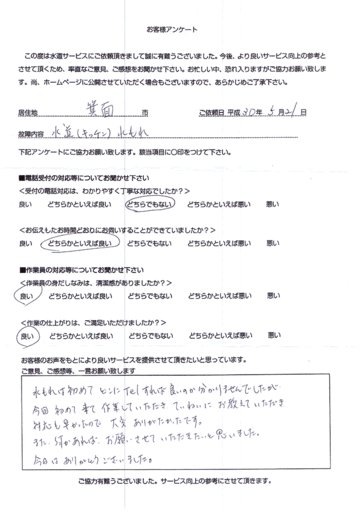 お客様アンケート
この度は水道サービスにご依頼頂きまして誠に有難うございました。今後、より良いサービス向上の参考と
させて頂くため、率直なご意見、ご感想をお聞かせ下さい。お忙しい中、恐れ入りますがご協力お願い致しま
す。尚、ホームページに公開させていただく場合もございますので、あらかじめご了承下さい。
居住地 箕面 市 ご依頼日 平成 30年 5月 21日
故障内容 水道(キッチン) 水もれ
下記アンケートにご協力お願い致します。該当項目に〇印をつけて下さい。
■電話受付の対応等についてお聞かせ下さい
<受付の電話対応は、わかりやすく丁寧な対応でしたか?>
良い どちらかといえば良い どちらでもない どちらかといえば悪い 悪い
<お伝えしたお時間どおりにお伺いすることができていましたか?>
良い どちらかといえば良い どちらでもない どちらかといえば悪い 悪い
■作業員の対応等についてお聞かせ下さい
<作業員の身だしなみは、清潔感がありましたか?>
良い どちらかといえば良い どちらでもない どちらかといえば悪い 悪い
<作業の仕上がりは、ご満足いただけましたか?>
良い どちらかといえば良い どちらでもない どちらかといえば悪い 悪い
お客様のお声をもとにより良いサービスを提供させて頂きたいと思っています。
ご意見、ご感想等、一言お願い致します
水もれは初めて どこに Telすれば良いのか分かりませんでしたが
今回 初めて 来て 作業していただき ていねいに お教えていただき
対応も早かったので 大変 ありがたかったです。
また 何かあれば お願いさせて いただきたいと思いました。
今日は ありがとうございました。
ご協力有難うございました。サービス向上の参考にさせて頂きます。